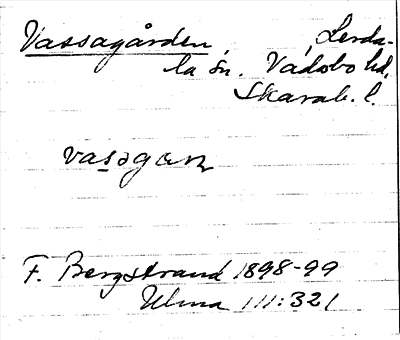 Vassagården, Lerda-
la sn. Vadsbo hd,
Skarab. l.
vasagaɳ
F. Bergstrand 1898-99
Ulma 111:321